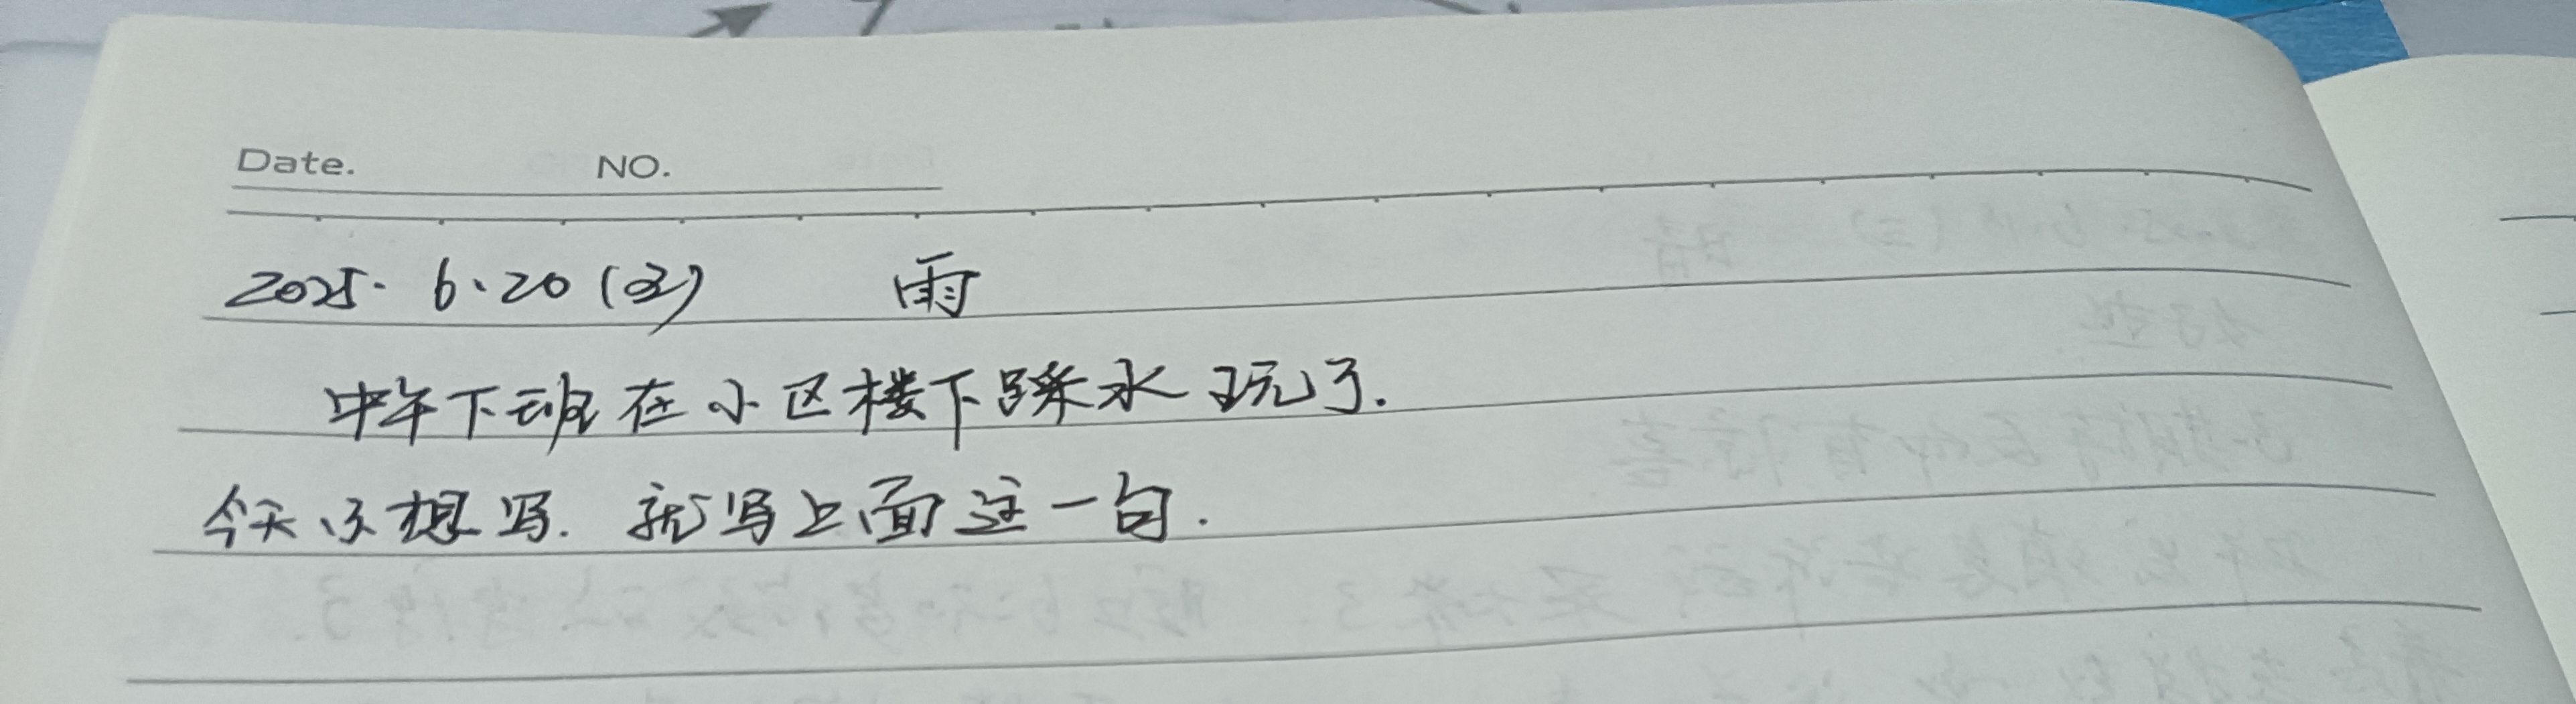 Date. NO.
2025. 6.20 () 雨
中午下班在小区楼下踩水玩了.
今天不想写. 就写上面这一句.